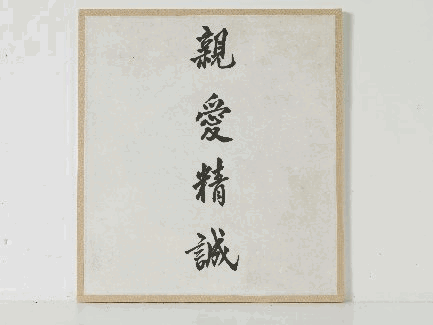 親愛精誠